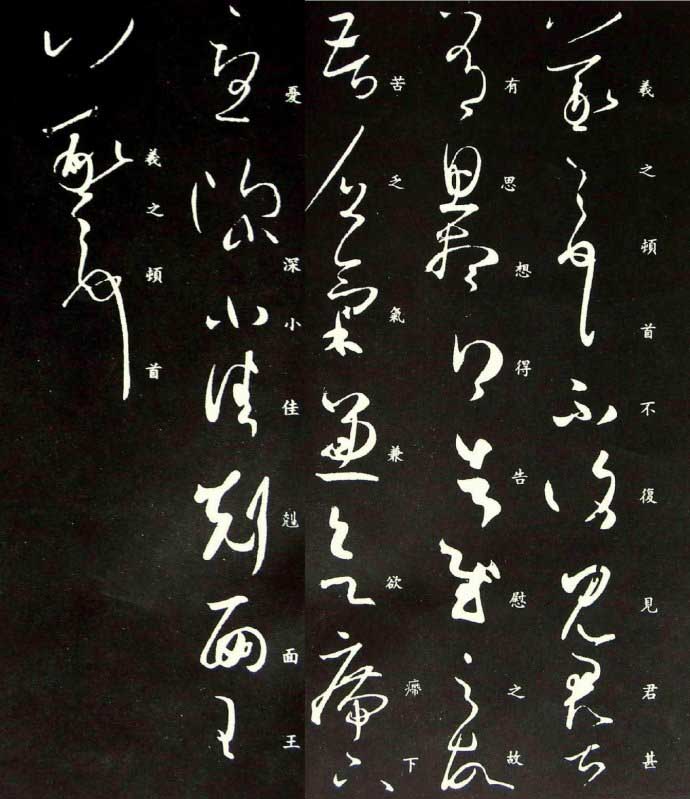 羲之頓首不復見君甚
有思想得告慰之故
苦乏氣兼欲㿃下
憂深小佳剋面王
羲之頓首